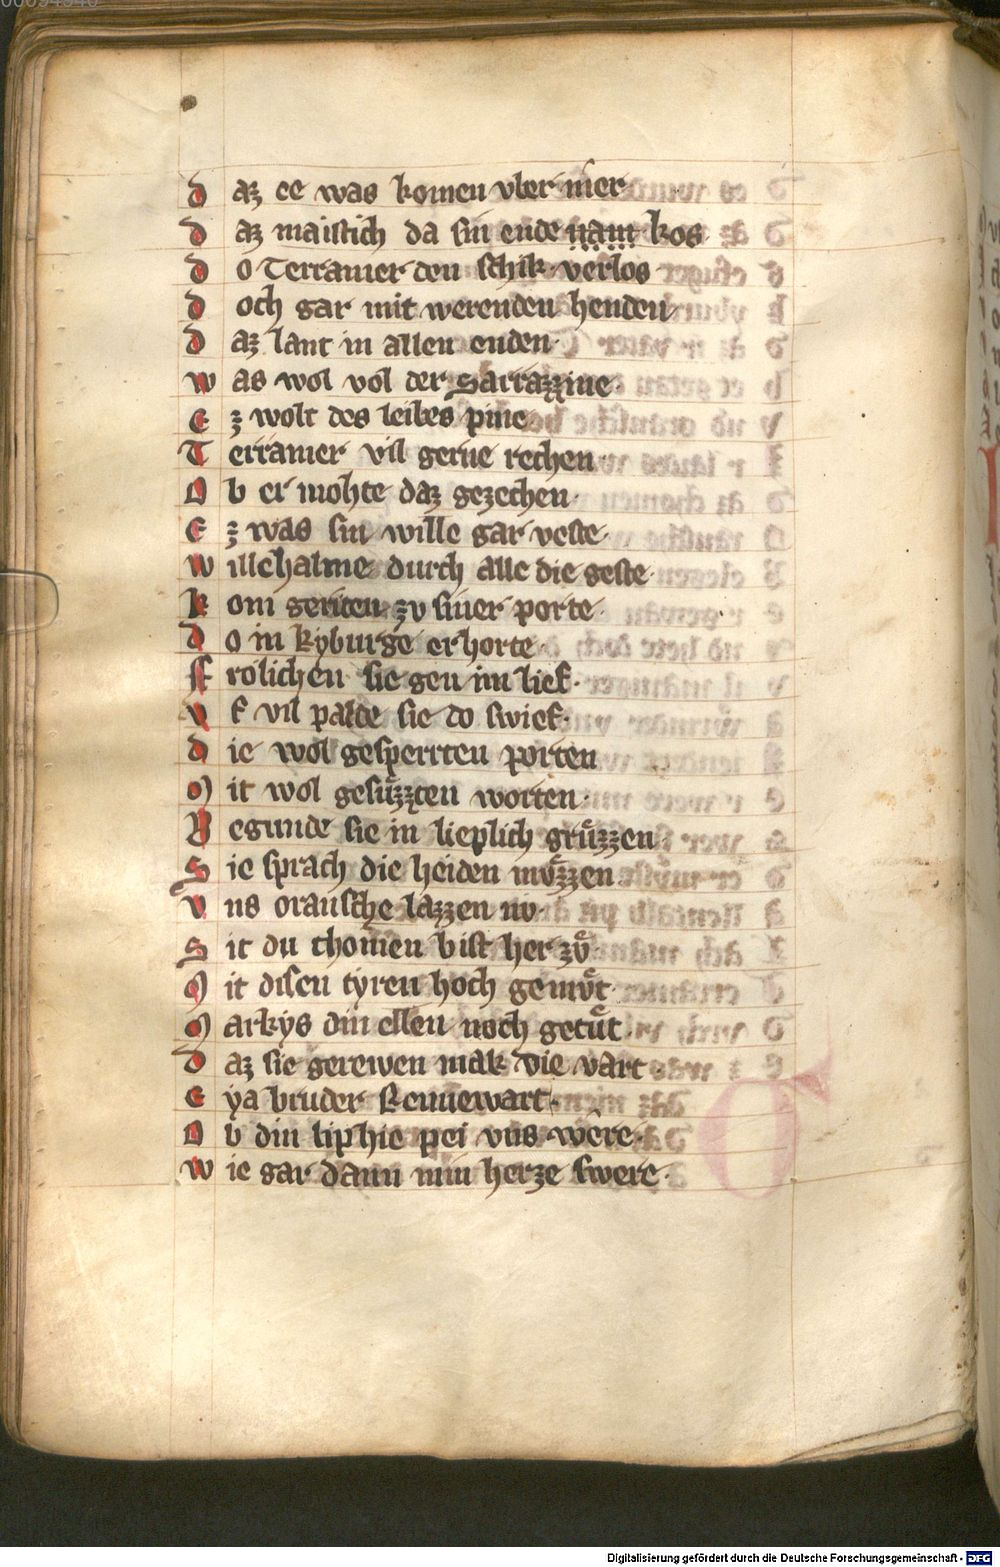 d az ee was komen vber mer
d az maistich da sin ende nam kos
d o Terramer den schik verlos
d och gar mit werenden henden
d az lant in allen enden·
w as wol vol der Sarrazzine·
E z wolt des leibes pine
T erramer vil gerne rechen·
O b er mohte daz gezechen·
E z was sin wille gar veste·
w illehalme durch alle die geste·
k om geriten zv siner porte·
d o in kyburge erhorte·
f rolichen sie gen im lief·
v f vil palde sie do swief·
d ie wol gesperrten porten
M it wol gesuͤzzten worten·
B egunde sie in lieplich gruͤzzen
S ie sprach die heiden muͤzzen
V ns oransche lazzen nv·
S it du chomen bist her zvͦ·
M it disen tyren hoch gemvͦt·
M arkys din ellen noch getuͦt·
D az sie gerewen mak die vart
E ya bruder Rennewart·
O b din liphie pei vns were·
w ie gar dann min herze swere·
00094540
Digitalisierung gefördert durch die Deutsche Forschungsgemeinschaft - DFG